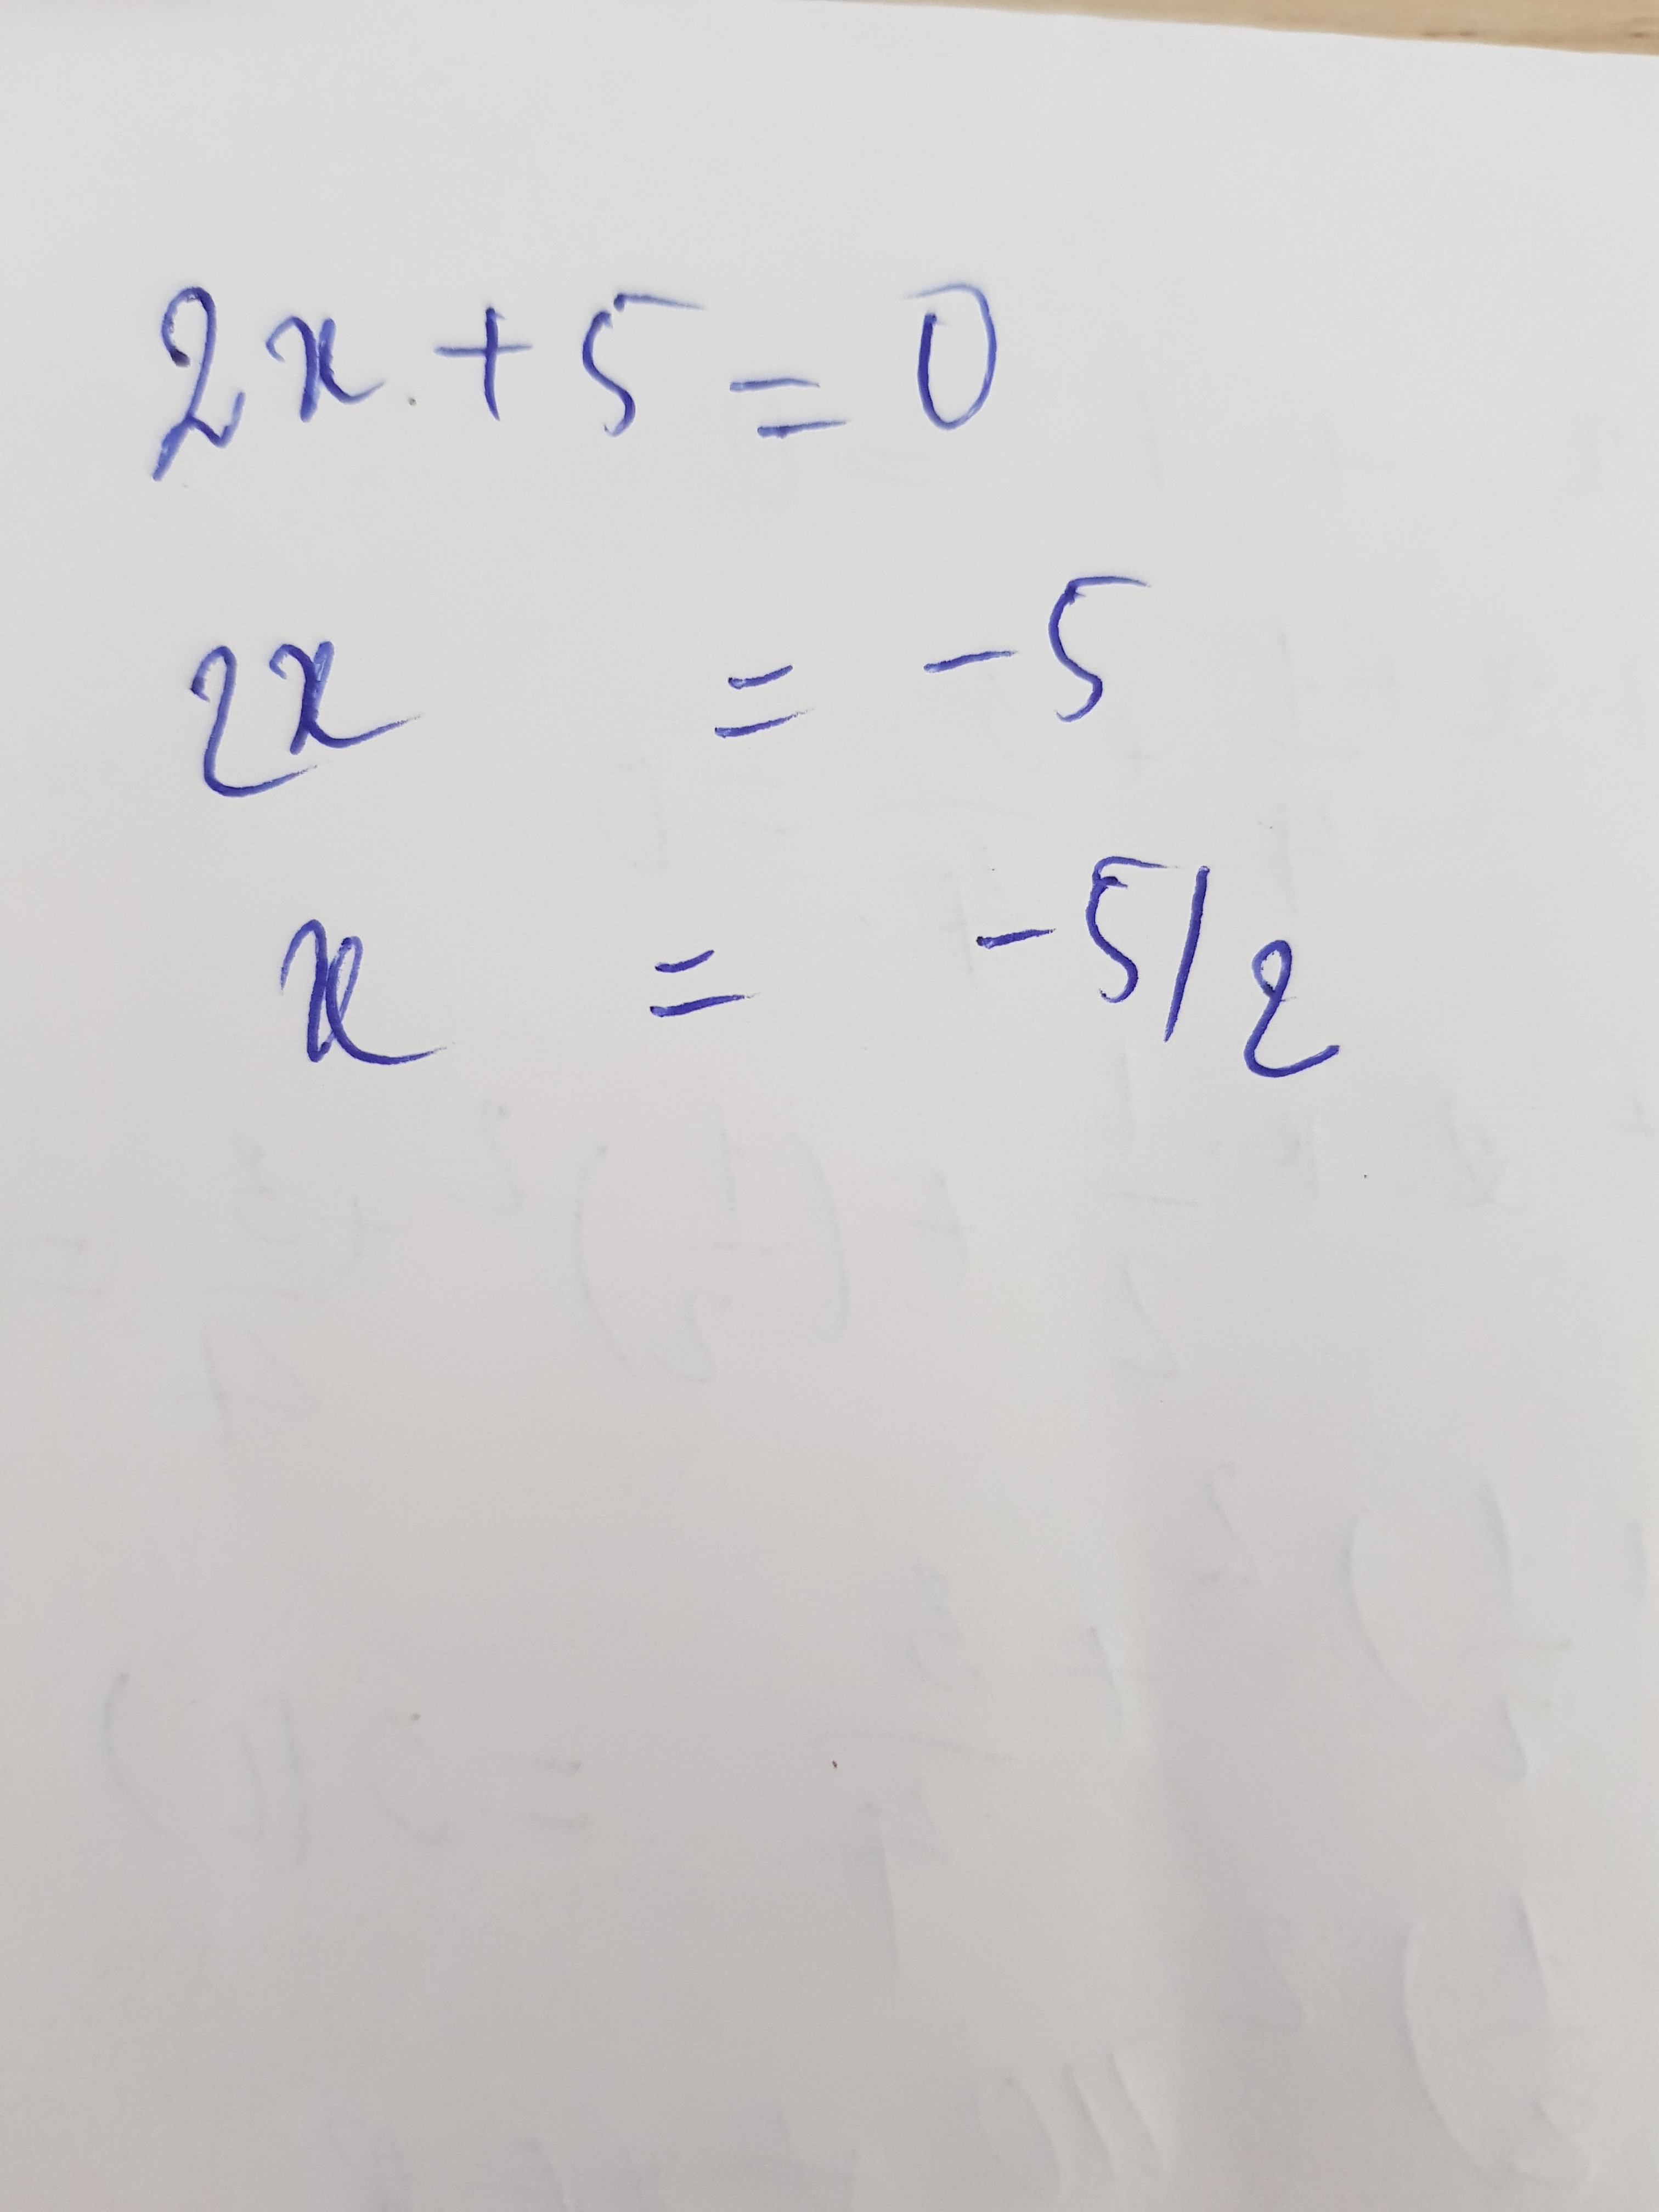 2x + 5 = 0
2x = -5
x = -5/2